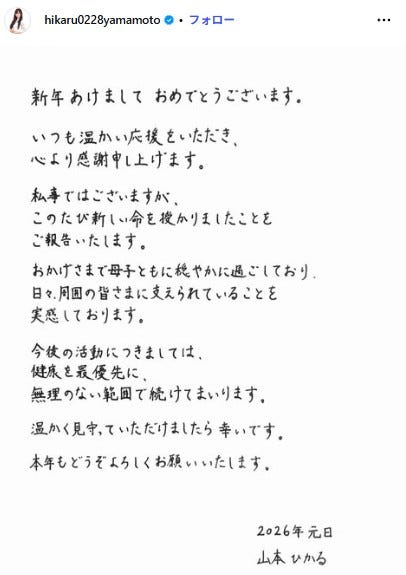 hikaru0228yamamoto • フォロー
新年あけまして おめでとうございます。
いつも温かい応援をいただき、
心より感謝申し上げます。
私事ではございますが、
このたび新しい命を授かりましたことを
ご報告いたします。
おかげさまで母子ともに穏やかに過ごしており、
日々、周囲の皆さまに支えられていることを
実感しております。
今後の活動につきましては、
健康を最優先に、
無理のない範囲で続けてまいります。
温かく見守っていただけましたら幸いです。
本年もどうぞよろしくお願いいたします。
2026年元日
山本ひかる